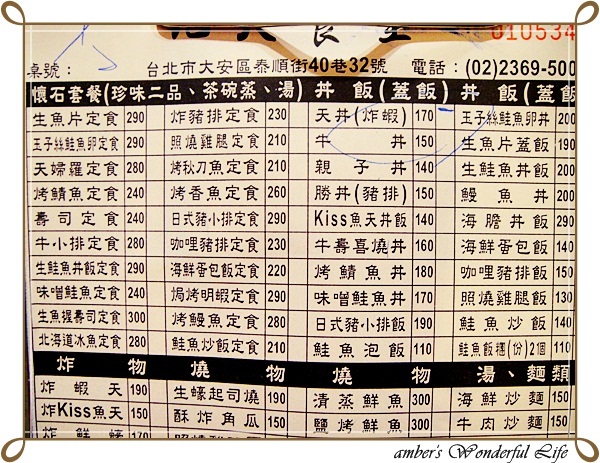 010534
桌號： 台北市大安區泰順街40巷32號 電話：(02)2369-500
懷石套餐(珍味二品、茶碗蒸、湯) 丼飯(蓋飯) 丼飯(蓋飯
生魚片定食 290 炸豬排定食 230 天丼(炸蝦) 170 玉子絲鮭魚卵丼 200
玉子絲鮭魚卵定食 290 照燒雞腿定食 210 牛丼 150 生魚片蓋飯 190
天婦羅定食 280 烤秋刀魚定食 210 親子丼 140 生鮭魚丼飯 200
烤鯖魚定食 240 烤香魚定食 260 勝丼(豬排) 160 鰻魚丼 200
壽司定食 240 日式豬小排定食 290 Kiss魚天丼飯 140 海膽丼飯 290
牛小排定食 280 咖哩豬排定食 230 牛壽喜燒丼 160 海鮮蛋包飯 140
生鮭魚丼飯定食 290 海鮮蛋包飯定食 220 烤鯖魚丼 180 咖哩豬排飯 150
味噌鮭魚定食 240 焗烤明蝦定食 290 味噌鮭魚丼 170 照燒雞腿飯 130
生魚握壽司定食 300 烤鰻魚定食 280 日式豬小排飯 190 鮭魚炒飯 140
北海道冰魚定食 280 鮭魚炒飯定食 210 鮭魚泡飯 110 鮭魚飯糰(份)2個 110
炸物 燒物 燒物 湯、麵類
炸蝦天 190 生蠔起司燒 190 清蒸鮮魚 300 海鮮炒麵 150
炸Kiss魚天 150 酥炸角瓜 150 鹽烤鮮魚 300 牛肉炒麵 150
amber's Wonderful Life